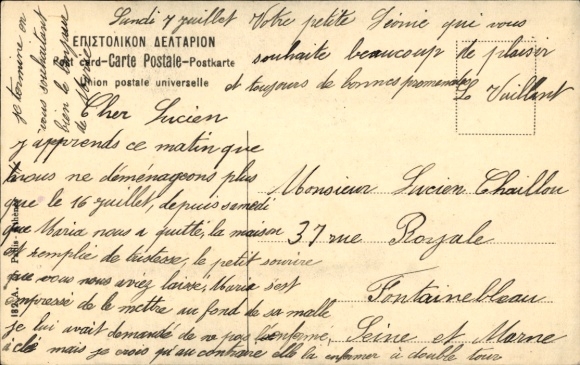 Lundi 7 juillet Votre petite Léonie qui vous
souhaite beaucoup de plaisir
et toujours de bonnes promenades
L. Vaillant
ΕΠΙΣΤΟΛΙΚΟΝ ΔΕΛΤΑΡΙΟΝ
Post card-Carte Postale-Postkarte
Union postale universelle
Cher Lucien
j'apprends ce matin que
nous ne déménageons plus
que le 16 juillet, depuis samedi
que Maria nous a quitté, la maison
est remplie de tristesse, le petit sourire
que vous nous aviez laissé, Maria s'est
empressé de le mettre au fond de sa malle
je lui avait demandé de ne pas l'enfermé,
à clé mais je crois qu'au contraire elle l'a enfermer à double tour
je termine en
vous souhaitant
bien le bonjour
de Marie
Monsieur Lucien Chaillou
37 rue Royale
Fontainebleau
Seine et Marne